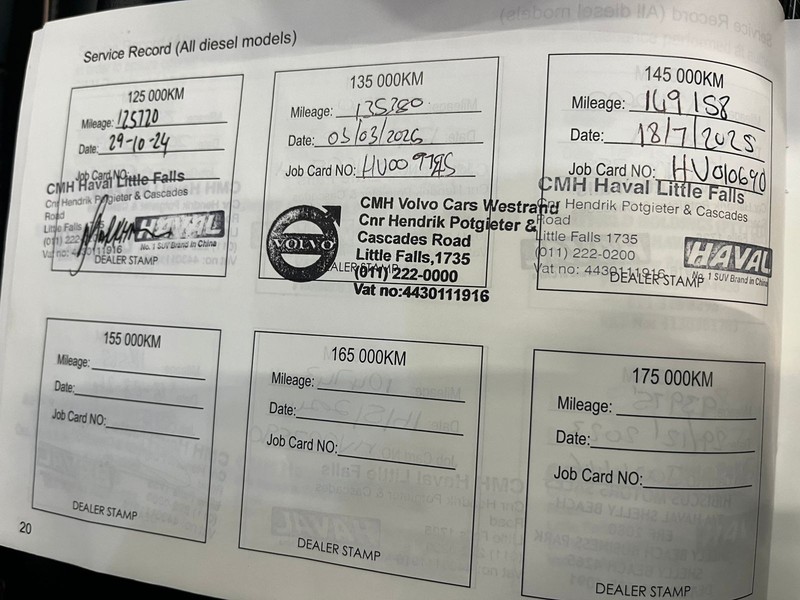 Service Record (All diesel models)
125 000KM
Mileage: 125720
Date: 29-10-24
Job Card NO:
CMH Haval Little Falls
Cnr Hendrik Potgieter & Cascades
Road
Little Falls
(011) 222
Vat no: 4430111916
HAVAL
No. 1 SUV Brand in China
DEALER STAMP
135 000KM
Mileage: 135280
Date: 03/03/2025
Job Card NO: HU009785
VOLVO
CMH Volvo Cars Westrand
Cnr Hendrik Potgieter &
Cascades Road
Little Falls,1735
(011) 222-0000
Vat no:4430111916
DEALER STAMP
145 000KM
Mileage: 149158
Date: 18/7/2025
Job Card NO: HU010690
CMH Haval Little Falls
Cnr Hendrik Potgieter & Cascades
Road
Little Falls 1735
(011) 222-0200
Vat no: 4430111916
HAVAL
No. 1 SUV Brand in China
DEALER STAMP
155 000KM
Mileage:
Date:
Job Card NO:
DEALER STAMP
165 000KM
Mileage:
Date:
Job Card NO:
DEALER STAMP
175 000KM
Mileage:
Date:
Job Card NO:
DEALER STAMP
20